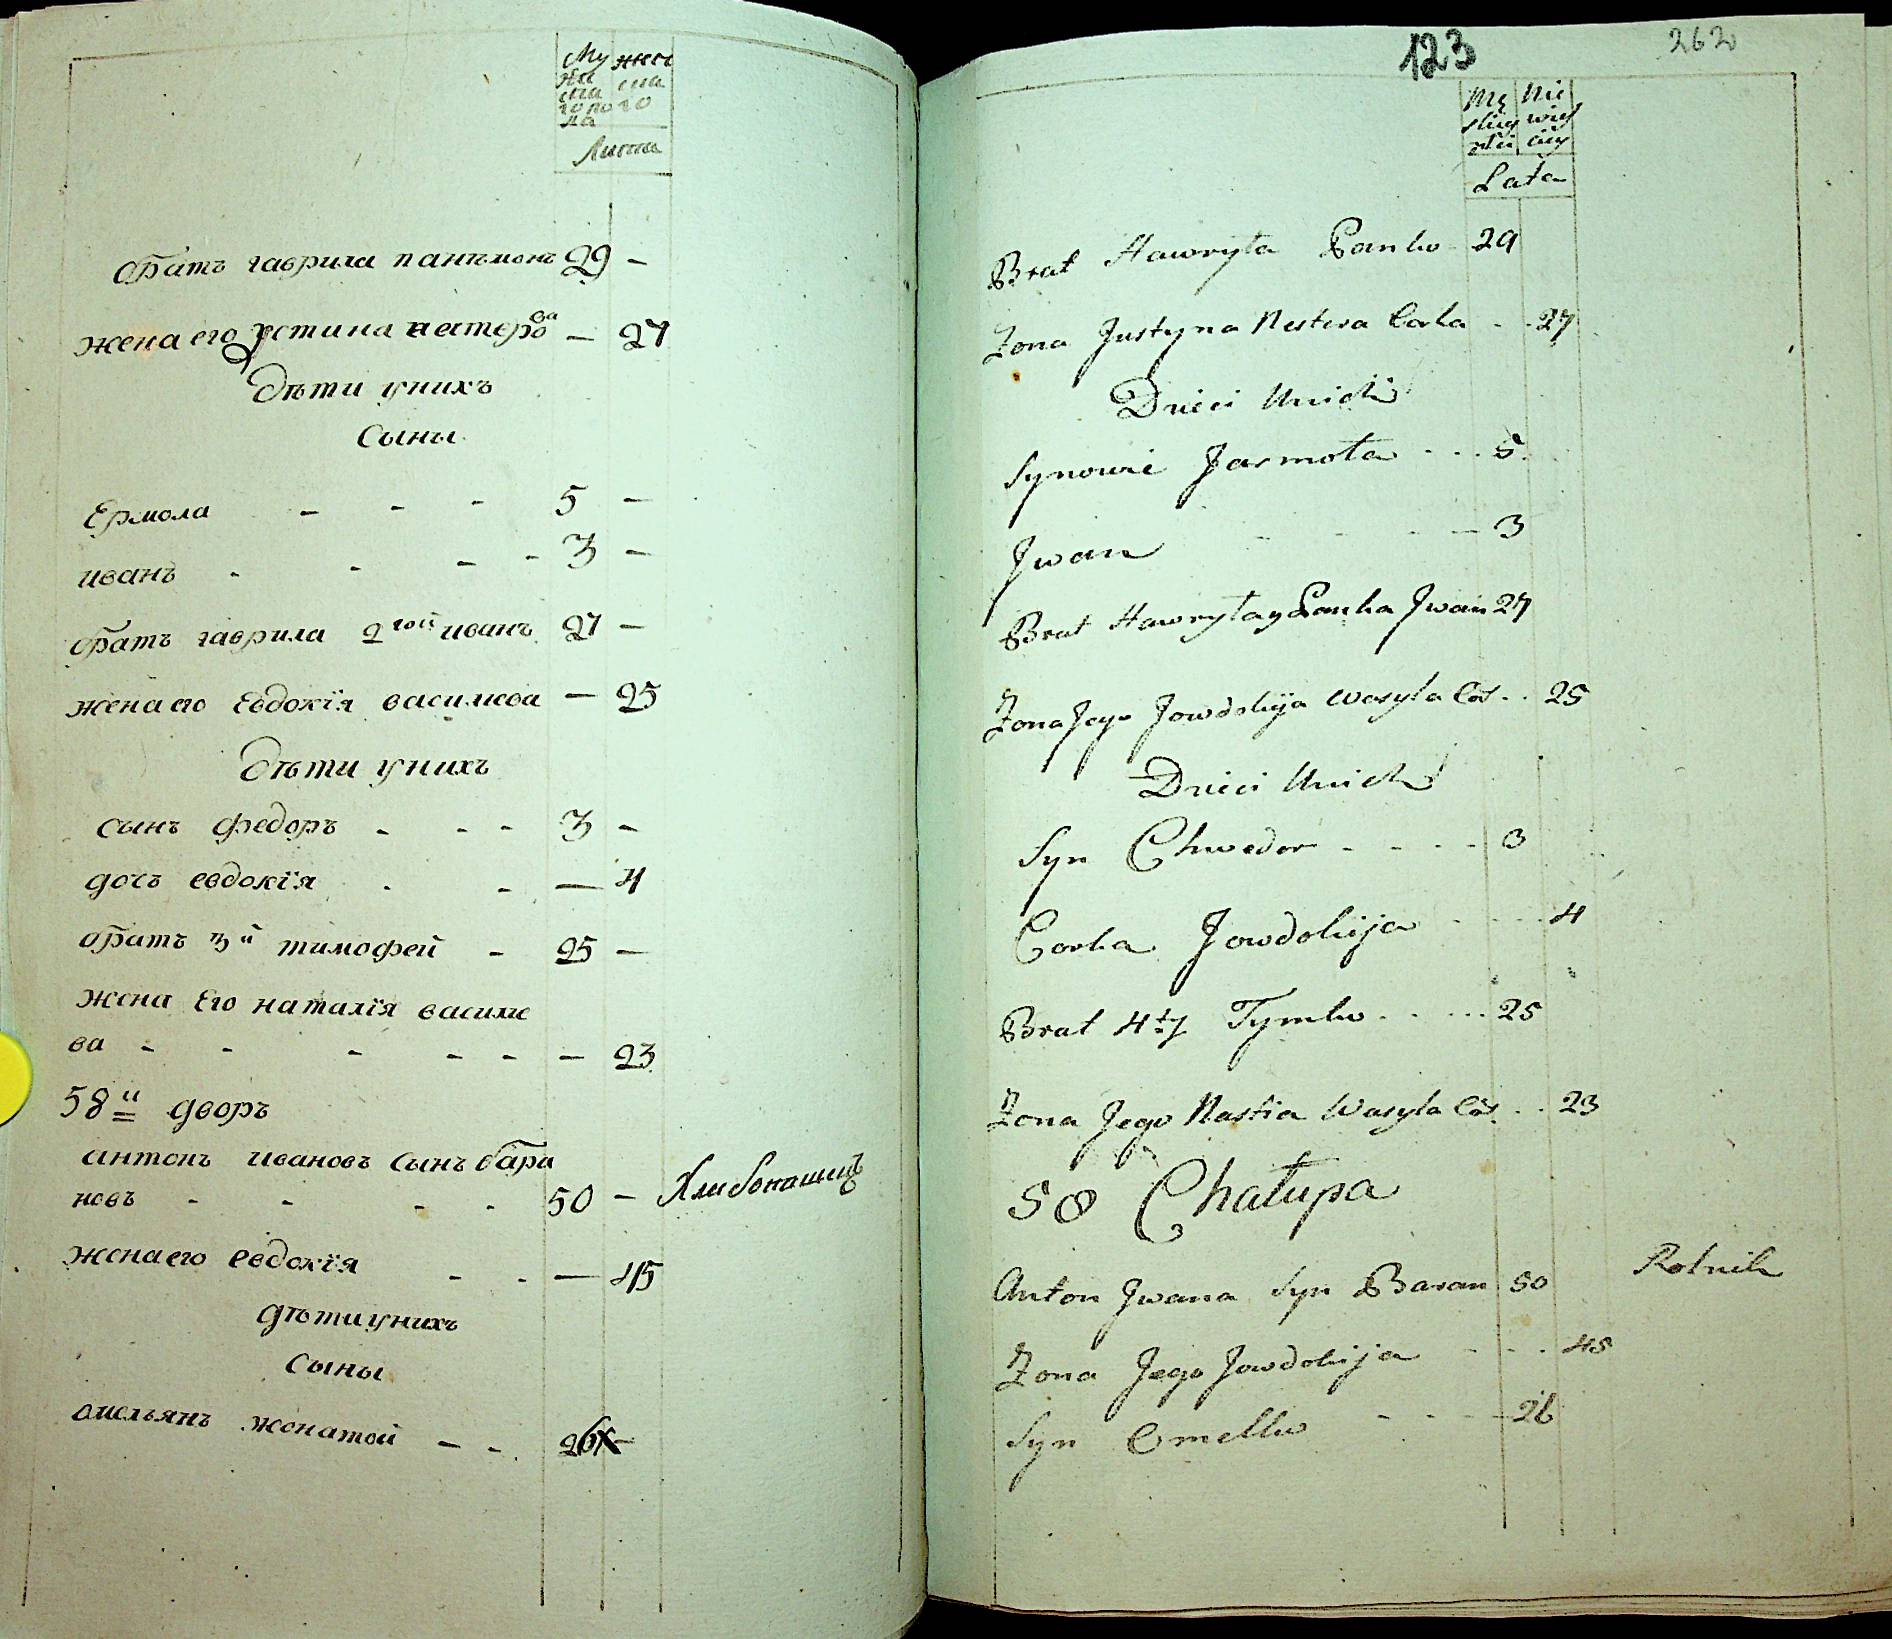 Му жеc
жи ска
ска го
го по
ла
Лита
братъ гаврила пантъмонъ 29 -
жена его устина нестерова - 27
Дѣти унихъ
Сыны
Ермола - - - 5 -
иванъ - - - - 3 -
братъ гаврила 2гой иванъ 27 -
жена его Евдокїя василева - 25
Дѣти унихъ
сынъ федоръ - - - 3 -
дочъ евдокїя - - - 4
братъ 3й тимофей - 25 -
жена Его наталїя василе
ва - - - - - - 23
58й дворъ
антонъ ивановъ Сынъ бара
новъ - - - - 50 - Хлибопашецъ
жена его евдокїя - - - 45
дѣти унихъ
Сыны
омельянъ женатой - - 26 -
123 262
Mę Nie
skiey wies
ciey
Lata
Brat Hawryła Panko - 29
Zona Justyna Nestera Corka - - 27
Dzieci Unich
Synowie Jarmoła - - - 5
Jwan - - - - - 3
Brat Hawryłay Panka Jwan 27
Zona Jego Jowdokija Wasyla Cor. - 25
Dzieci Unich
Syn Chwedor - - - - 3
Corka Jowdokija - - - - 4
Brat 4ty Tymko - - - - 25
Zona Jego Nastia Wasyla Cor. - - 23
58 Chałupa
Anton Jwana Syn Baran 50 Rolnik
Zona Jego Jowdokija - - - 45
Syn Omelko - - - - 26